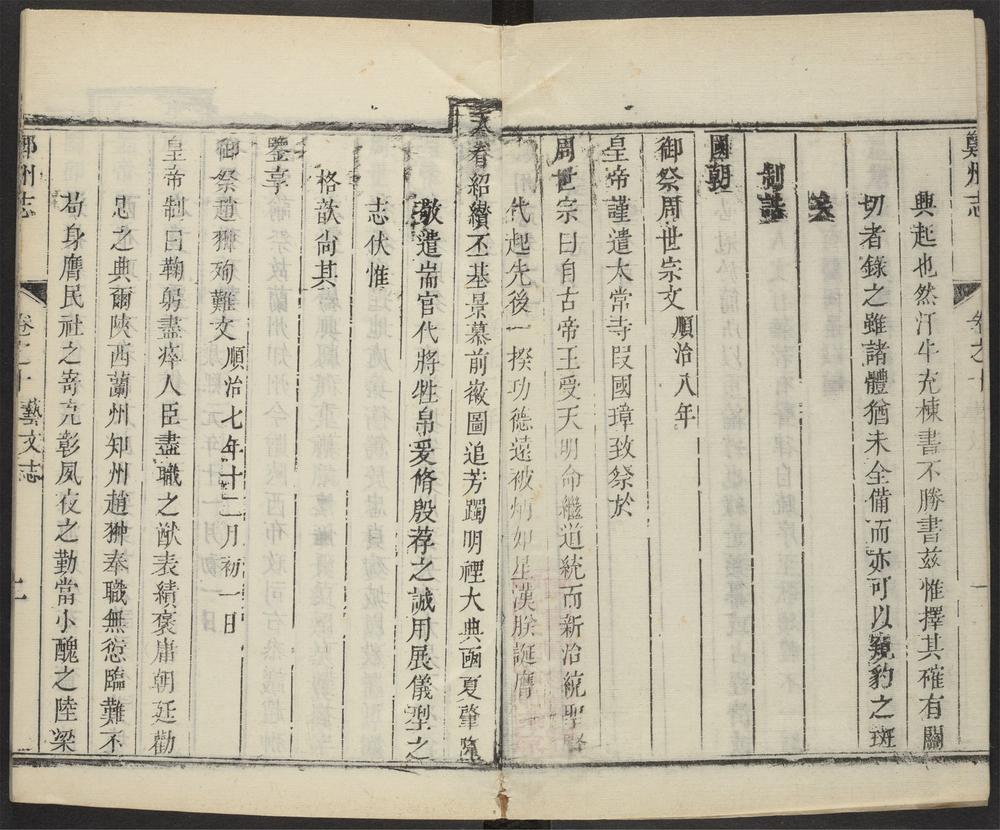 鄭州志
卷之十
一
興起也然汗牛充棟書不勝書茲惟擇其確有關
切者錄之雖諸體猶未全備而亦可以窺豹之斑
矣
制誥
國朝
御祭周世宗文順治八年
皇帝謹遣太常寺段國璋致祭於
周世宗曰自古帝王受天明命繼道統而新治統聖賢
代起先後一揆功德遠被炳如星漢朕誕膺
天眷紹纘丕基景慕前徽圖追芳躅明禋大典函夏肇隆
敬遣耑官代將牲帛爰脩殷荐之誠用展儀型之
志伏惟
格歆尚其
鑒享
御祭趙翀殉難文順治七年十二月初一日
皇帝制曰鞠躬盡瘁人臣盡職之猷表績褒庸朝廷勸
忠之典爾陜西蘭州知州趙翀奉職無愆臨難不
茍身膺民社之寄克彰夙夜之勤當小醜之陸梁
鄭州志
卷之十
藝文志